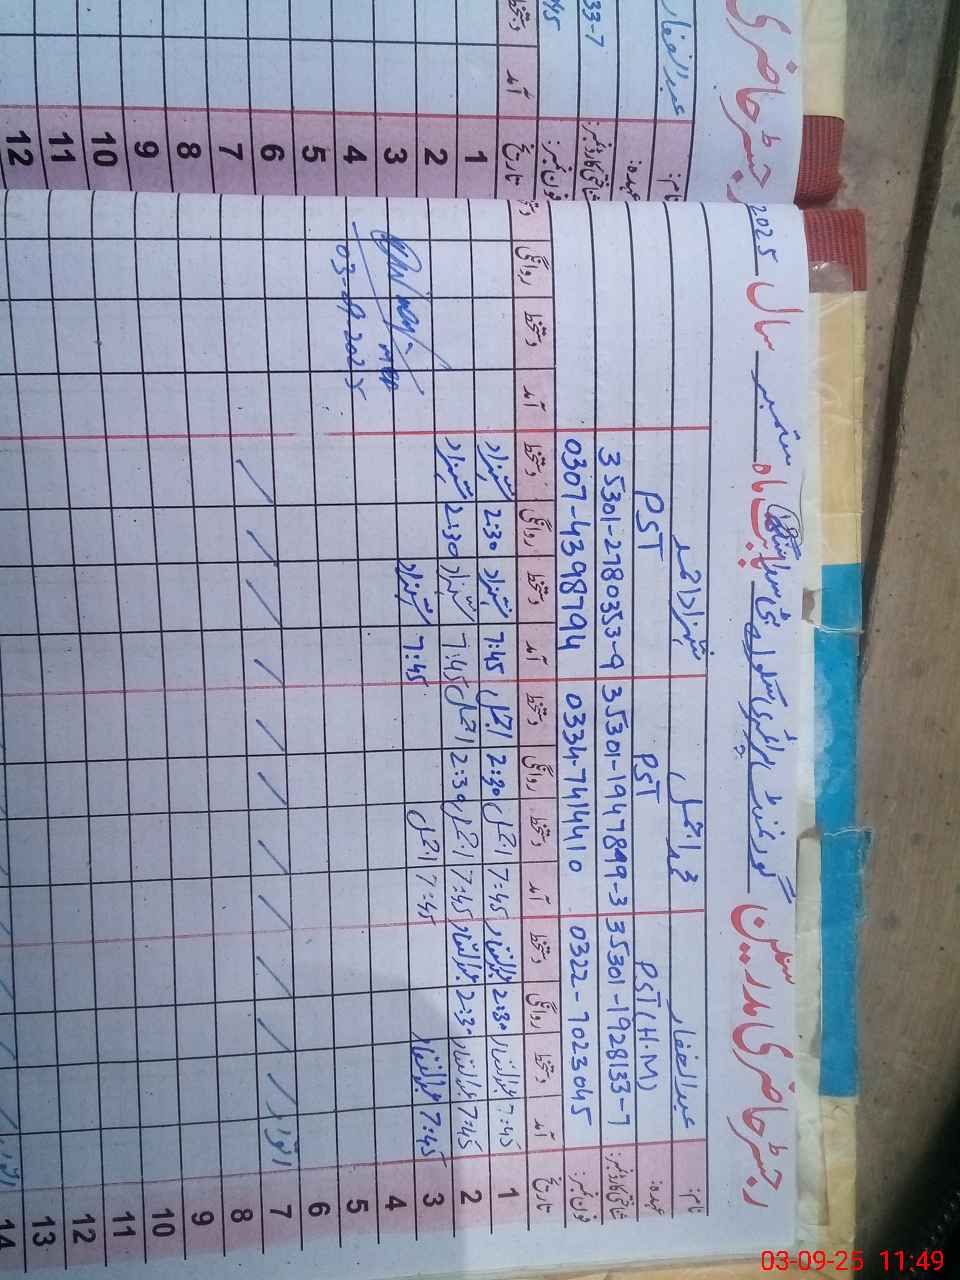 رجسٹر حاضری مدرسین
گورنمنٹ پرائمری سکول
بابت ماہ ستمبر سال 2025
نام: عبدالغفار محمد اجمل شہزاد احمد
عہدہ: PST (H.M) PST PST
شناختی کارڈ نمبر: 35301-1928133-7 35301-1947899-3 35301-2780353-9
فون نمبر: 0322-7023045 0334-7414410 0307-4398794
تاریخ آمد دستخط روانگی دستخط آمد دستخط روانگی دستخط آمد دستخط روانگی دستخط آمد دستخط روانگی
1 7:45 عبدالغفار 2:30 عبدالغفار 7:45 اجمل 2:30 اجمل 7:45 شہزاد 2:30 شہزاد
2 7:45 عبدالغفار 2:30 عبدالغفار 7:45 اجمل 2:30 اجمل 7:45 شہزاد 2:30 شہزاد
3 7:45 عبدالغفار 7:45 اجمل 7:45 شہزاد
4
5
6
7 اتوار
8
9
10
11
12
13
14 اتوار
رجسٹر حاضری
نام: عبدالغفار
عہدہ:
شناختی کارڈ نمبر: 33-7
فون نمبر: 45
تاریخ آمد دستخط
1
2
3
4
5
6
7
8
9
10
11
12
03-09-25 11:49